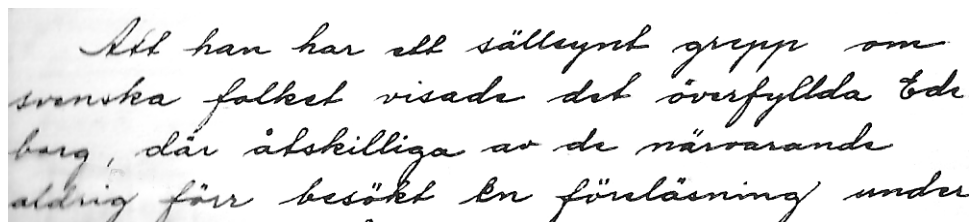 Att han har ett sällsynt grepp om
svenska folket visade det överfyllda Ede
borg, där åtskilliga av de närvarande
aldrig förr besökt en föreläsning under